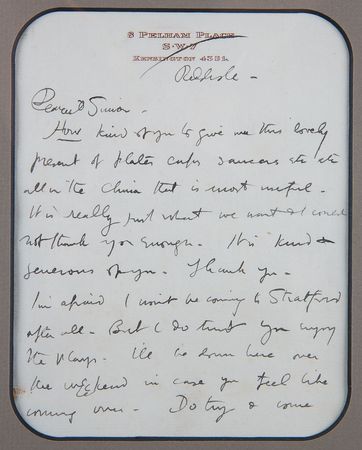 8 Pelham Place
S·W·7
Kensington 4331.
Reddish –
Dearest Simon –
How kind of you to give me this lovely
present of plates cups saucers etc etc
all in the china that is most useful –
It is really just what we want & I could
not thank you enough – It is kind &
generous of you – Thank you –
I'm afraid I won't be coming to Stratford
after all – But I do trust you enjoy
the plays – I'll be down here over
the weekend in case you feel like
coming over – Do try & come